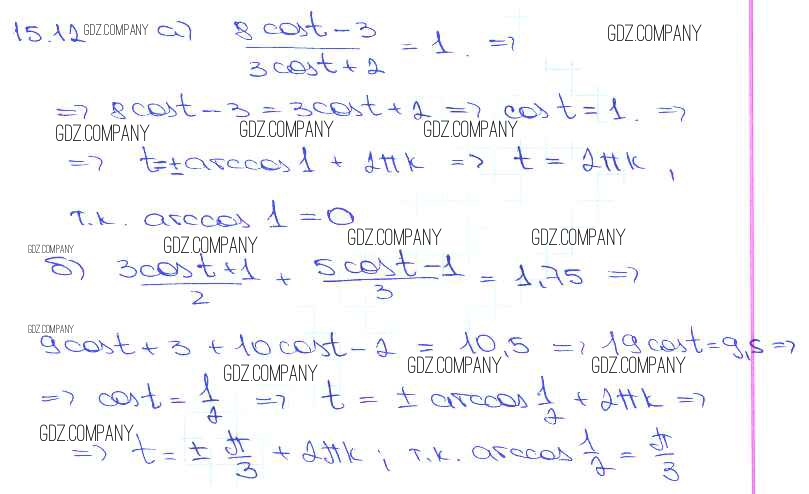 15.12 GDZ.COMPANY а) (8cost-3)/(3cost+2) = 1. => GDZ.COMPANY
=> 8cost-3 = 3cost+2 => cos t = 1. =>
GDZ.COMPANY GDZ.COMPANY GDZ.COMPANY
=> t=±arccos1 + 2πk => t = 2πk,
т.к. arccos 1 = 0
GDZ.COMPANY GDZ.COMPANY GDZ.COMPANY GDZ.COMPANY
б) (3cost+1)/2 + (5cost-1)/3 = 1,75 =>
GDZ.COMPANY
9cost+3+10cost-2 = 10,5 => 19cost=9,5 =>
GDZ.COMPANY GDZ.COMPANY GDZ.COMPANY
=> cost = 1/2 => t = ± arccos 1/2 + 2πk =>
GDZ.COMPANY
=> t = ± π/3 + 2πk; т.к. arccos 1/2 = π/3